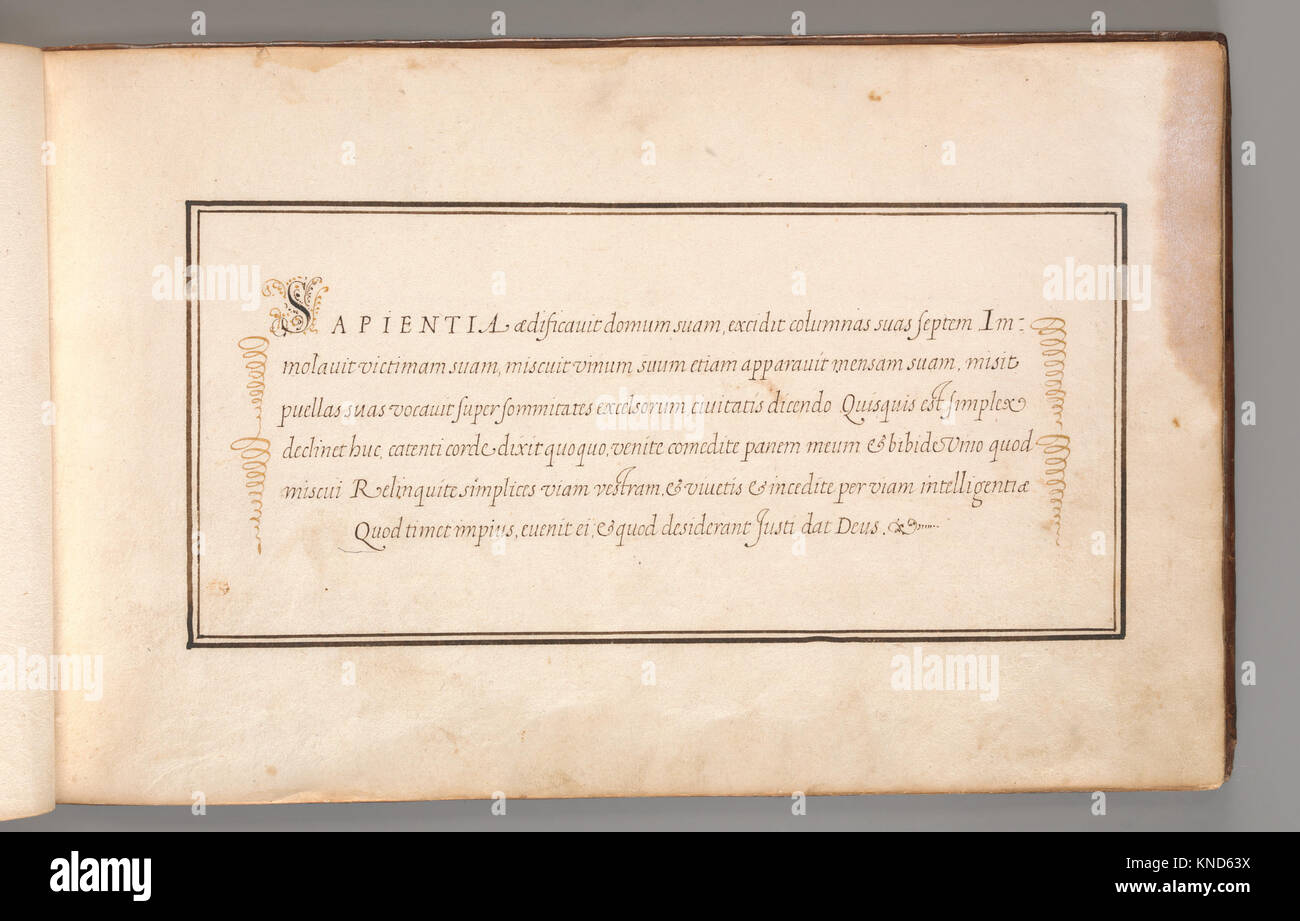 SAPIENTIA ædificavit domum suam, excidit columnas suas septem Im:
molavit victimam suam, miscuit vinum suum etiam apparavit mensam suam, misit
puellas suas vocavit super sommitates excelsorum civitatis dicendo Quisquis est simplex
declinet huc, catenti corde dixit quoquo, venite comedite panem meum & bibide Vino quod
miscui Relinquite simplices viam vestram, & vivetis & incedite per viam intelligentiæ
Quod timet impius, evenit ei, & quod desiderant Justi dat Deus. &
alamy
Image ID: KND63X
www.alamy.com